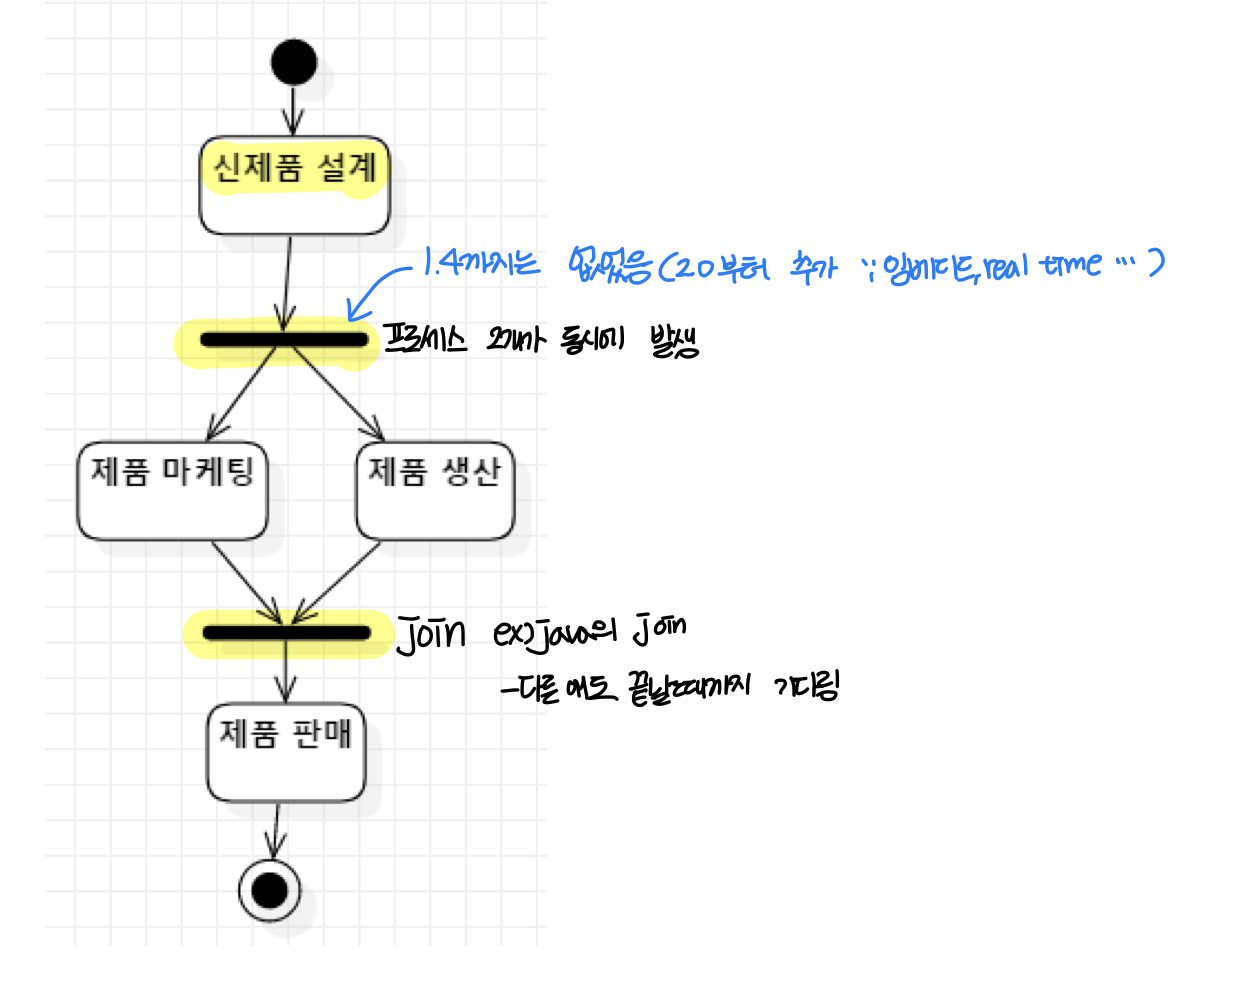 신제품 설계
1.4까지는 없었음(2.0부터 추가 ∵임베디드,real time …)
프로세스 2개가 동시에 발생
제품 마케팅
제품 생산
join ex)java의 join
-다른 애도 끝날때까지 기다림
제품 판매